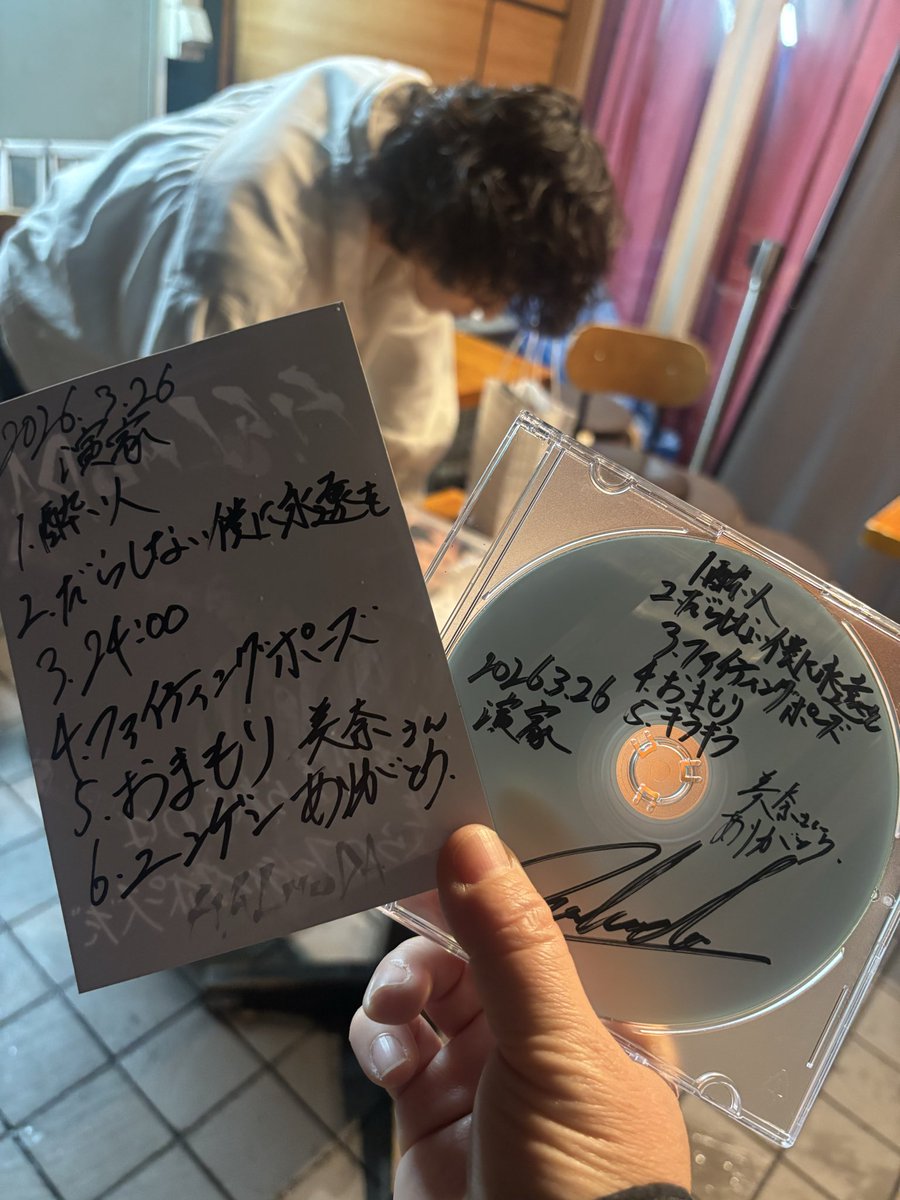 2026.3.26
演家
1.酔い人
2.だらしない僕に永遠を
3.24:00
4.ファイティングポーズ
5.おまもり
6.ニンゲン
美奈さん
ありがとう.
1.酔い人
2.だらしない僕に永遠を
3.ファイティングポーズ
4.おまもり
5.キラキラ
2026.3.26
演家
美奈さん
ありがとう.